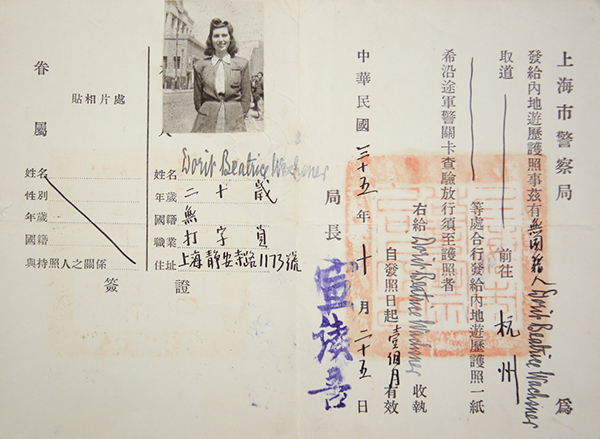 上海市警察局
發給內地遊歷護照事茲有無國籍人Dorit Beatrice Wachsner 為
取道 前往 杭州
等處合行發給內地遊歷護照一紙
希沿途軍警關卡查驗放行須至護照者
右給 Dorit Beatrice Wachsner 收執
自發照日起壹個月有效
中華民國三十五年十月二十五日
局長 宣鐵吾
人
姓名 Dorit Beatrice Wachsner
年歲 二十歲
國籍 無
職業 打字員
住址 上海靜安寺路1173號
眷屬
貼相片處
姓名
性別
年歲
國籍
與持照人之關係
簽證